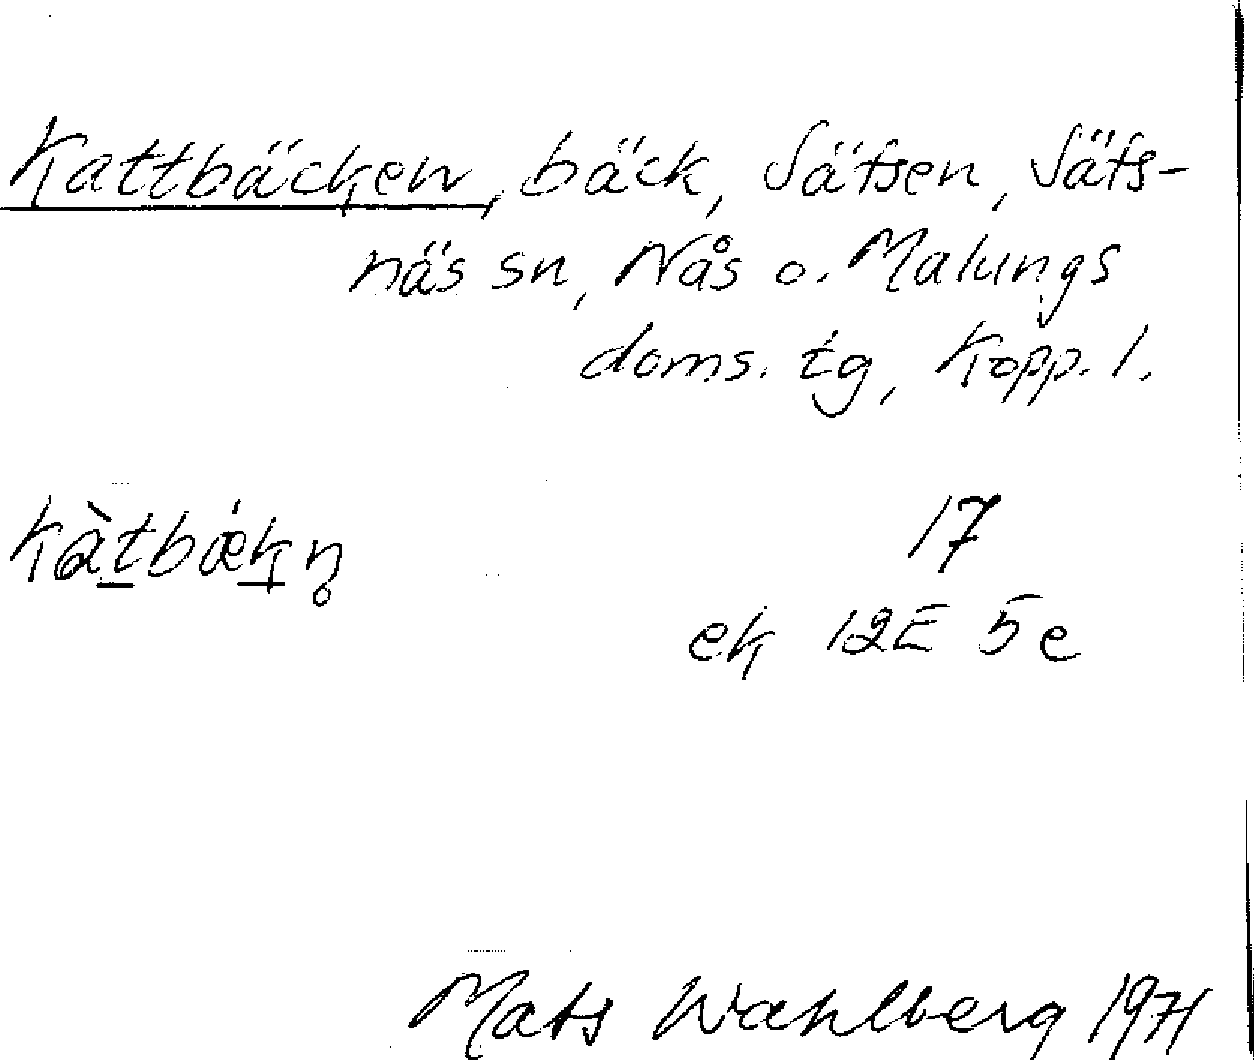 Kattbäcken, bäck, Sätsen, Säfs-
näs sn, Nås o. Malungs
doms. tg, Kopp. l.
kàt̲bǽk̲n̥ 17
ek 12E 5e
Mats Wahlberg 1971